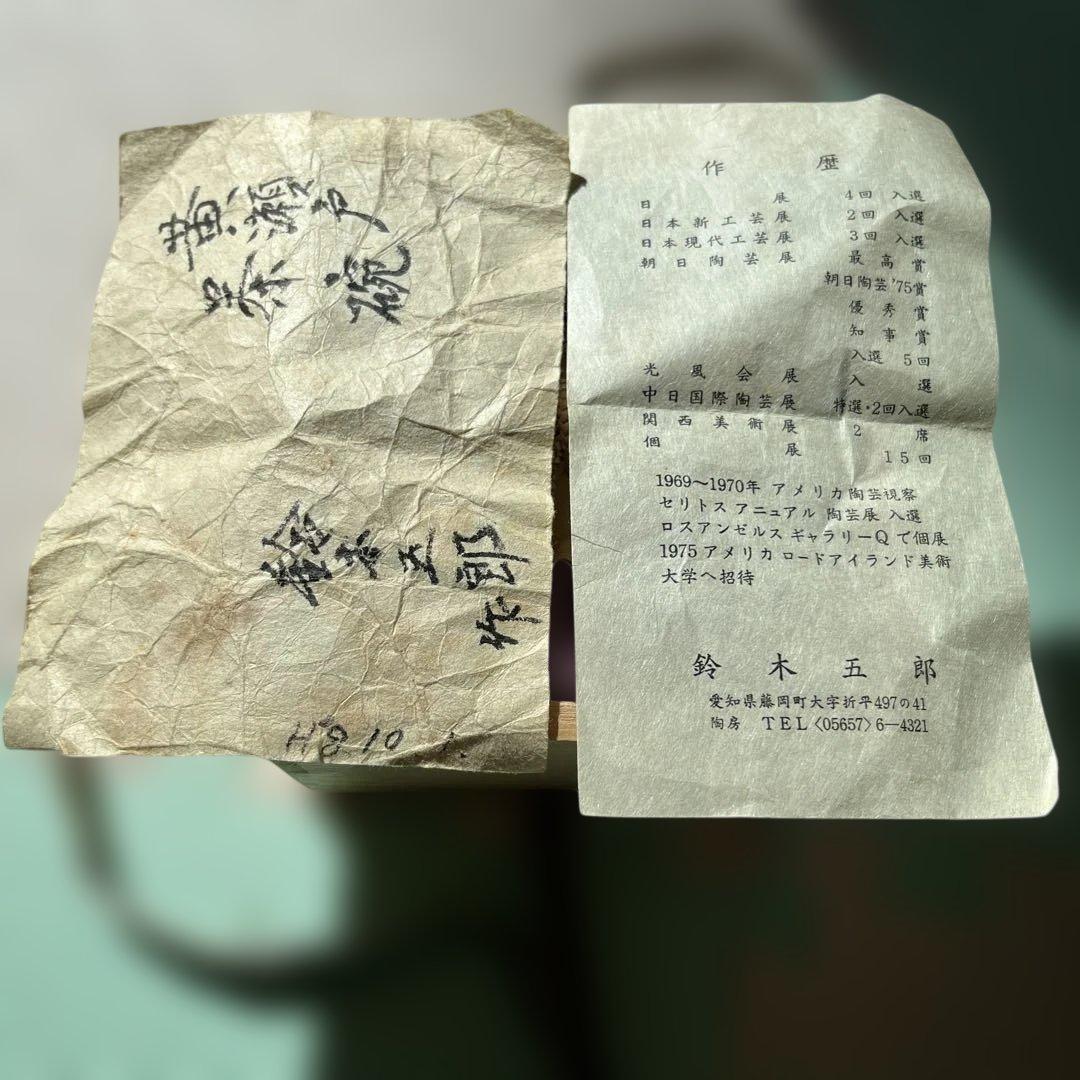 黄瀬戸
碗
鈴木五郎
作
H8 10 1.
作 歴
日 展 4回 入選
日本新工芸展 2回 入選
日本現代工芸展 3回 入選
朝日陶芸展 最高賞
朝日陶芸'75賞
優秀賞
知事賞
入選 5回
光風会展 入選
中日国際陶芸展 特選・2回入選
関西美術展 2席
個 展 15回
1969〜1970年 アメリカ陶芸視察
セリトス アニュアル 陶芸展 入選
ロスアンゼルス ギャラリーQで個展
1975 アメリカ ロードアイランド美術
大学へ招待
鈴木五郎
愛知県藤岡町大字折平497の41
陶房 TEL〈05657〉6―4321